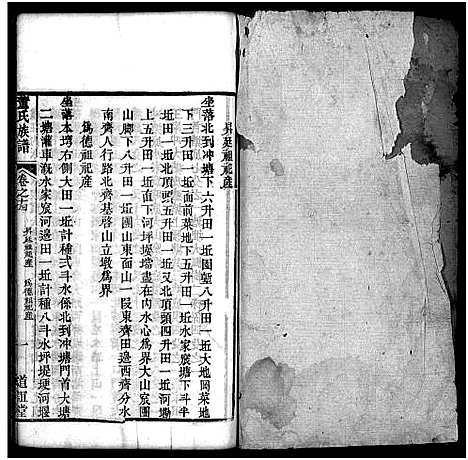 昇廷祖祀產
坐落北到冲塘下六升田一坵園塱八升田一坵大地岡菜地
下三升田一坵面前菜地下五升田一坵水家宸塘下斗半
一坵田一坵北頂頭五升田一坵又北頂頭四升田一坵河塝
上五升田一坵下河坪晏壋盡在內水心為界大山宸團
山脚下八升田一坵團山東面山一叚東齊田邉西齊分水
南齊人行路北齊基啓山立墩為界
為德祖祀產
坐落本塆右側大田一坵計種弍斗水係北到冲塘門首大塘
二塘灌車溉水家宸河邉田一坵計種八斗水坪堤埂河堰
氏族譜
卷之十四
昇廷祖祀產
為德祖祀產
一
道訓堂